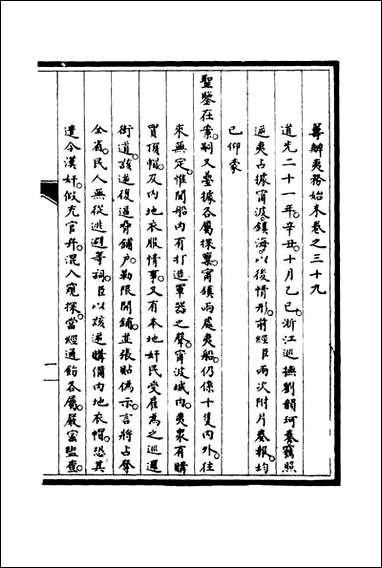 籌辦夷務始末卷之三十九
道光二十一年。辛丑。十月乙巳。浙江巡撫劉韻珂奏竊照
逆夷占據甯波。鎮海以後情形。前經臣兩次附片奏報。均
已仰蒙
聖鑒在案。嗣又疊據各屬探稟。甯鎮兩處夷船仍係十隻內外。往
來無定。惟聞船內有打造軍器之聲。甯波城內。夷眾有購
買頂帽。及內地衣服情事。又有本地奸民受雇為之巡邏
街道。該逆復逼脅鋪戶。勒限開鋪。並張貼偽示。言將占奪
全省。民人無從逃避等詞。臣以該逆購備內地衣帽。恐其
遣令漢奸。假充官弁。混入窺探。當經通飭各屬。嚴密監查。